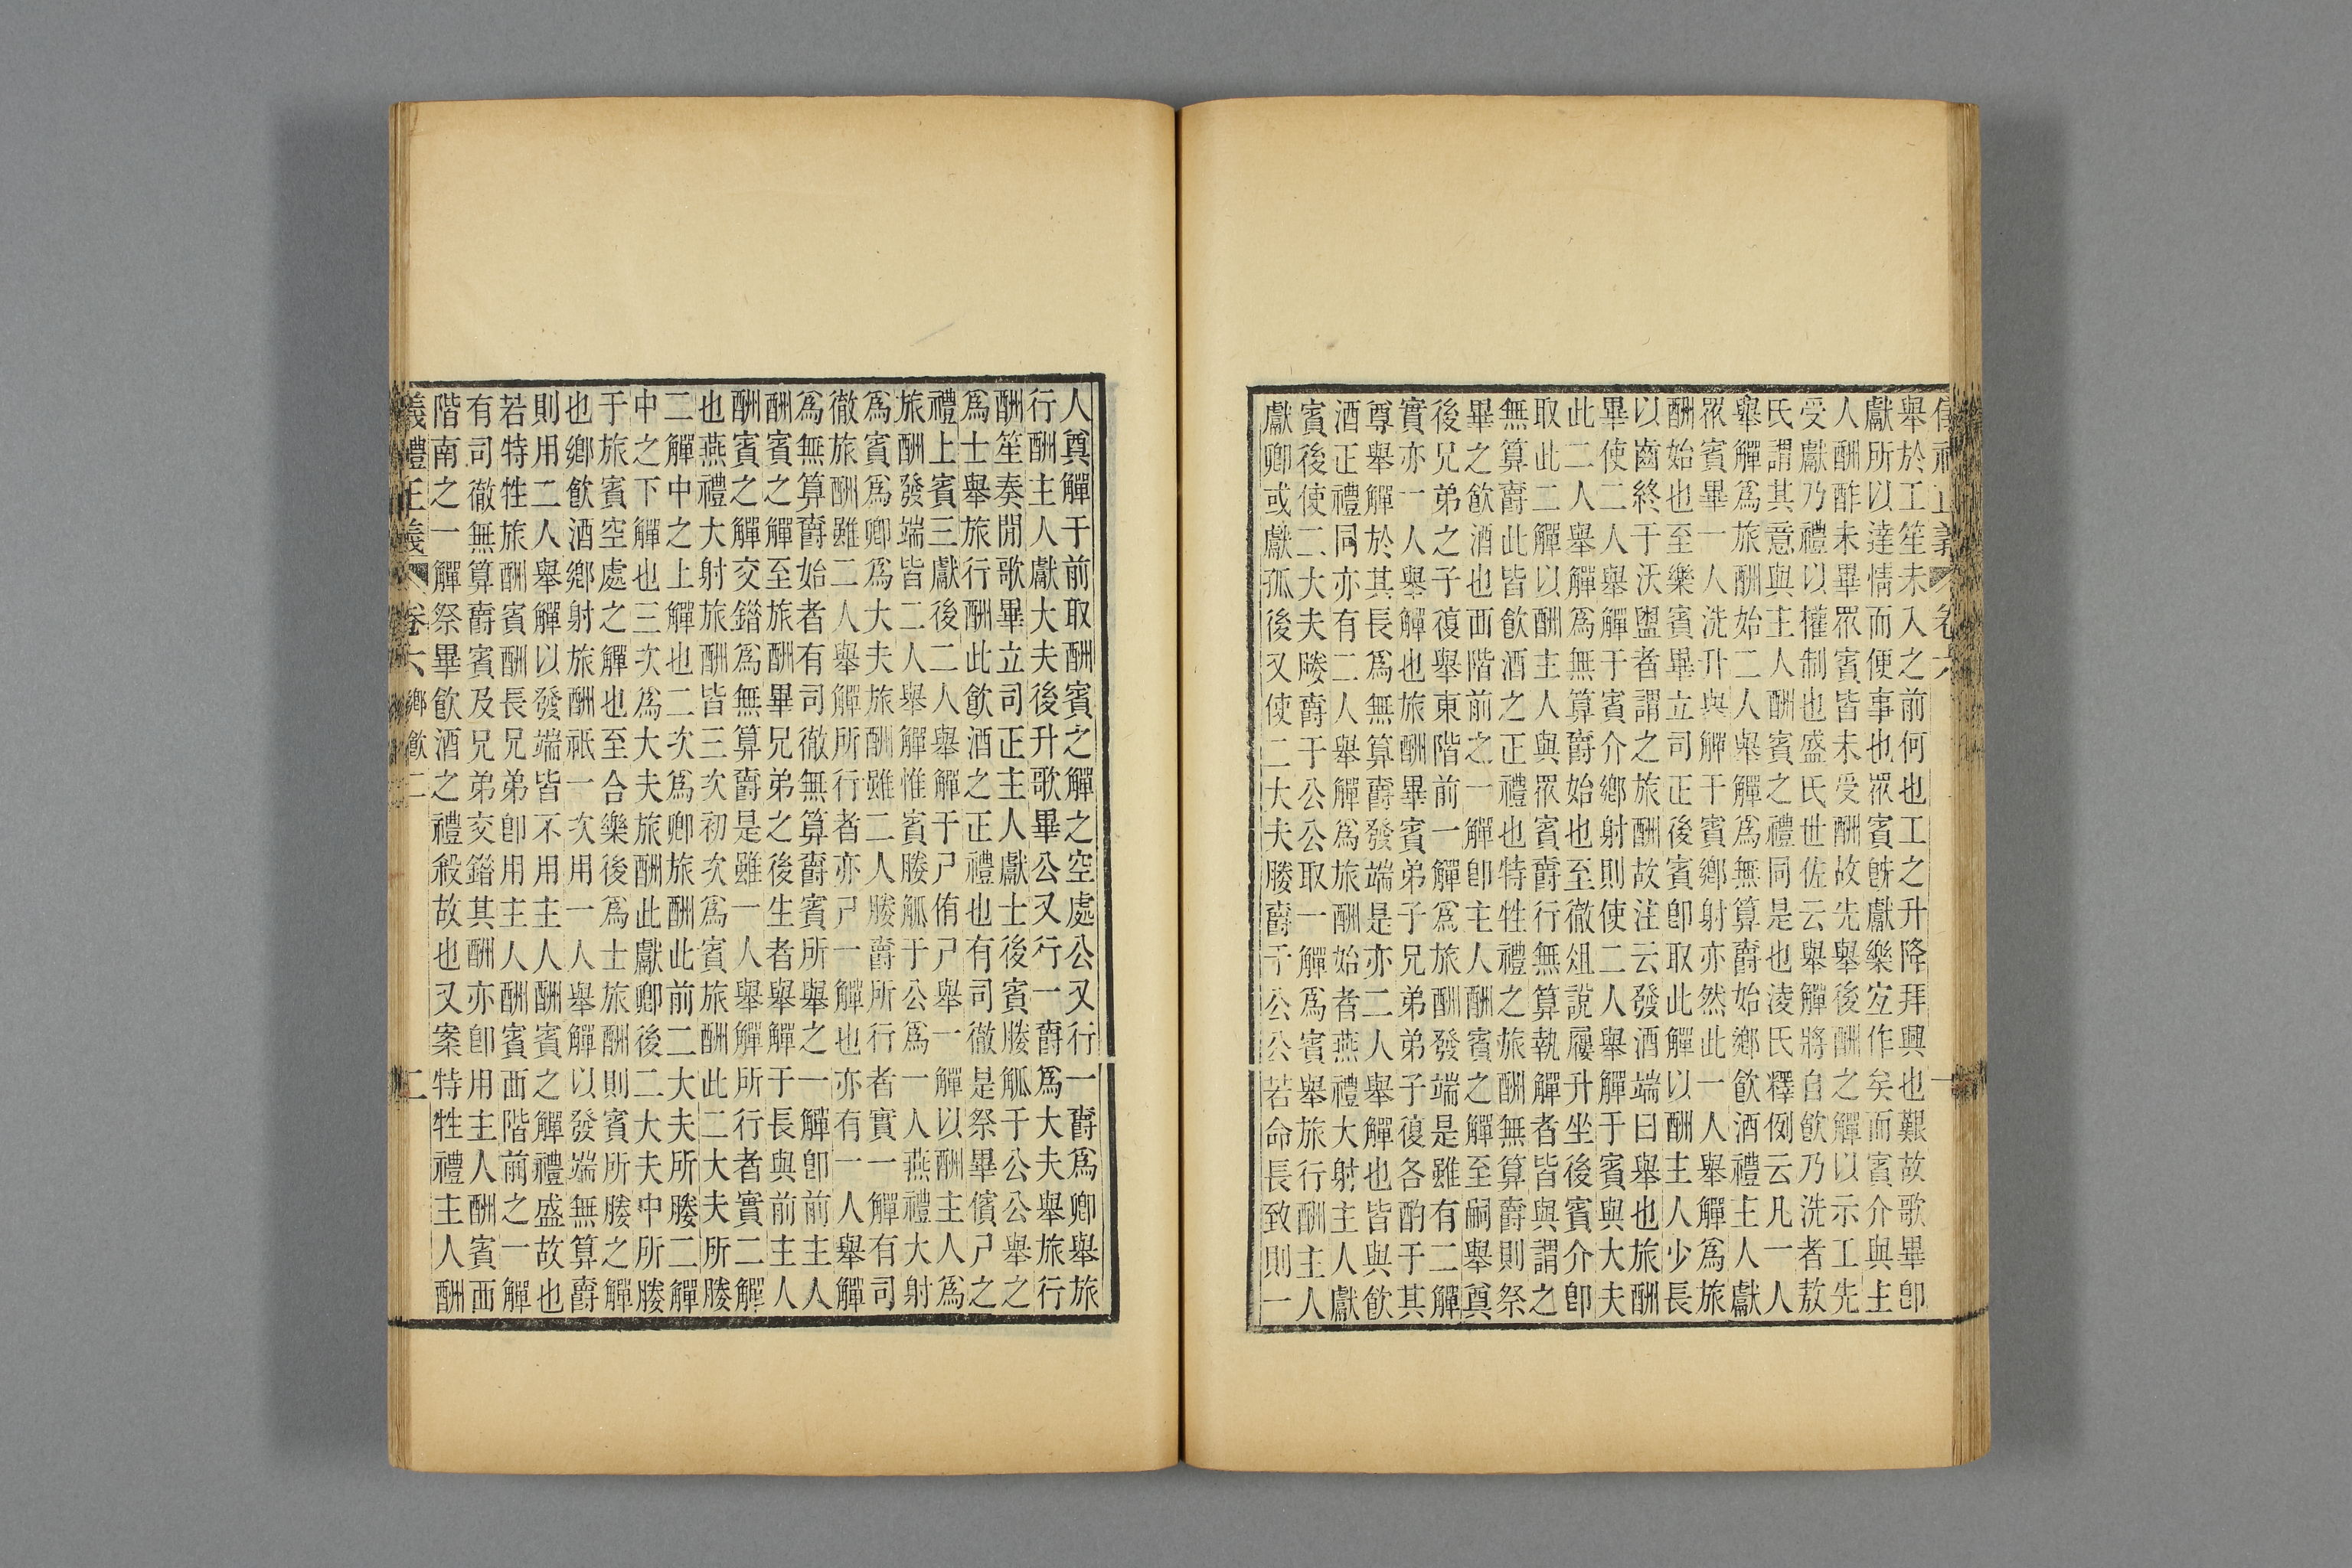 儀禮正義 卷六 一
舉於工笙未入之前何也工之升降拜興也艱故歌畢卽
獻所以達情而便事也眾賓旣獻樂宐作矣而賓介與主
人酬酢未畢眾賓皆未受酬故先舉後酬之觶以示工先
受獻乃禮以權制也盛氏世佐云舉觶將自飲乃洗者敖
氏謂其意與主人酬賓之禮同是也淩氏釋例云凡一人
舉觶爲旅酬始二人舉觶爲無算爵始鄉飲酒禮主人獻
眾賓畢一人洗升與觶于賓鄉射亦然此一人舉觶爲旅
酬始也至樂賓畢立司正後賓卽取此觶以酬主人少長
以齒終于沃盥者謂之旅酬故注云發酒端曰舉也旅酬
畢使二人舉觶于賓介鄉射則使二人舉觶于賓與大夫
此二人舉觶爲無算爵始也至徹俎說屨升坐後賓介卽
取此二觶以酬主人與眾賓爵行無算執觶者皆與謂之
無算爵此皆飲酒之正禮也特牲禮之旅酬無算爵則祭
畢之飲酒也西階前之一觶卽主人酬賓之觶至嗣舉奠
後兄弟之子復舉東階前一觶爲旅酬發端是雖有二觶
實亦一人舉觶也旅酬畢賓弟子兄弟弟子復各酌于其
尊舉觶於其長爲無算爵發端是亦二人舉觶也皆與飲
酒正禮同亦有二人舉觶爲旅酬始者燕禮大射主人獻
賓後使二大夫媵爵于公公取一觶爲賓舉旅行酬主人
獻卿或獻孤後又使二大夫媵爵于公公若命長致則一
人奠觶于前取酬賓之觶之空處公又行一爵爲卿舉旅
行酬主人獻大夫後升歌畢公又行一爵爲大夫舉旅行
酬笙奏閒歌畢立司正主人獻士後賓媵觚于公公舉之
爲士舉旅行酬此飲酒之正禮也有司徹是祭畢儐尸之
禮上賓三獻後二人舉觶于尸侑尸舉一觶以酬主人爲
旅酬發端皆二人舉觶惟賓媵觚于公爲一人燕禮大射
爲賓爲卿爲大夫旅酬雖二人媵爵所行者實一觶有司
徹旅酬雖二人舉觶所行者亦尸一觶也亦有一人舉觶
爲無算爵始者有司徹無算爵賓所舉之一觶卽前主人
酬賓之觶至旅酬畢兄弟之後生者舉觶于長與前主人
酬賓之觶交錯爲無算爵是雖一人舉觶所行者實二觶
也燕禮大射旅酬皆三次初次爲賓旅酬此二大夫所媵
二觶中之上觶也二次爲卿旅酬此前二大夫所媵二觶
中之下觶也三次爲大夫旅酬此獻卿後二大夫中所媵
于旅賓空處之觶也至合樂後爲士旅酬則賓所媵之觶
也鄉飲酒鄉射旅酬祇一次用一人舉觶以發端無算爵
則用二人舉觶以發端皆不用主人酬賓之觶禮盛故也
若特牲旅酬賓酬長兄弟卽用主人酬賓西階前之一觶
有司徹無算爵賓及兄弟交錯其酬亦卽用主人酬賓西
階南之一觶祭畢飲酒之禮殺故也又案特牲禮主人酬
儀禮正義 卷六 鄉飲二 二